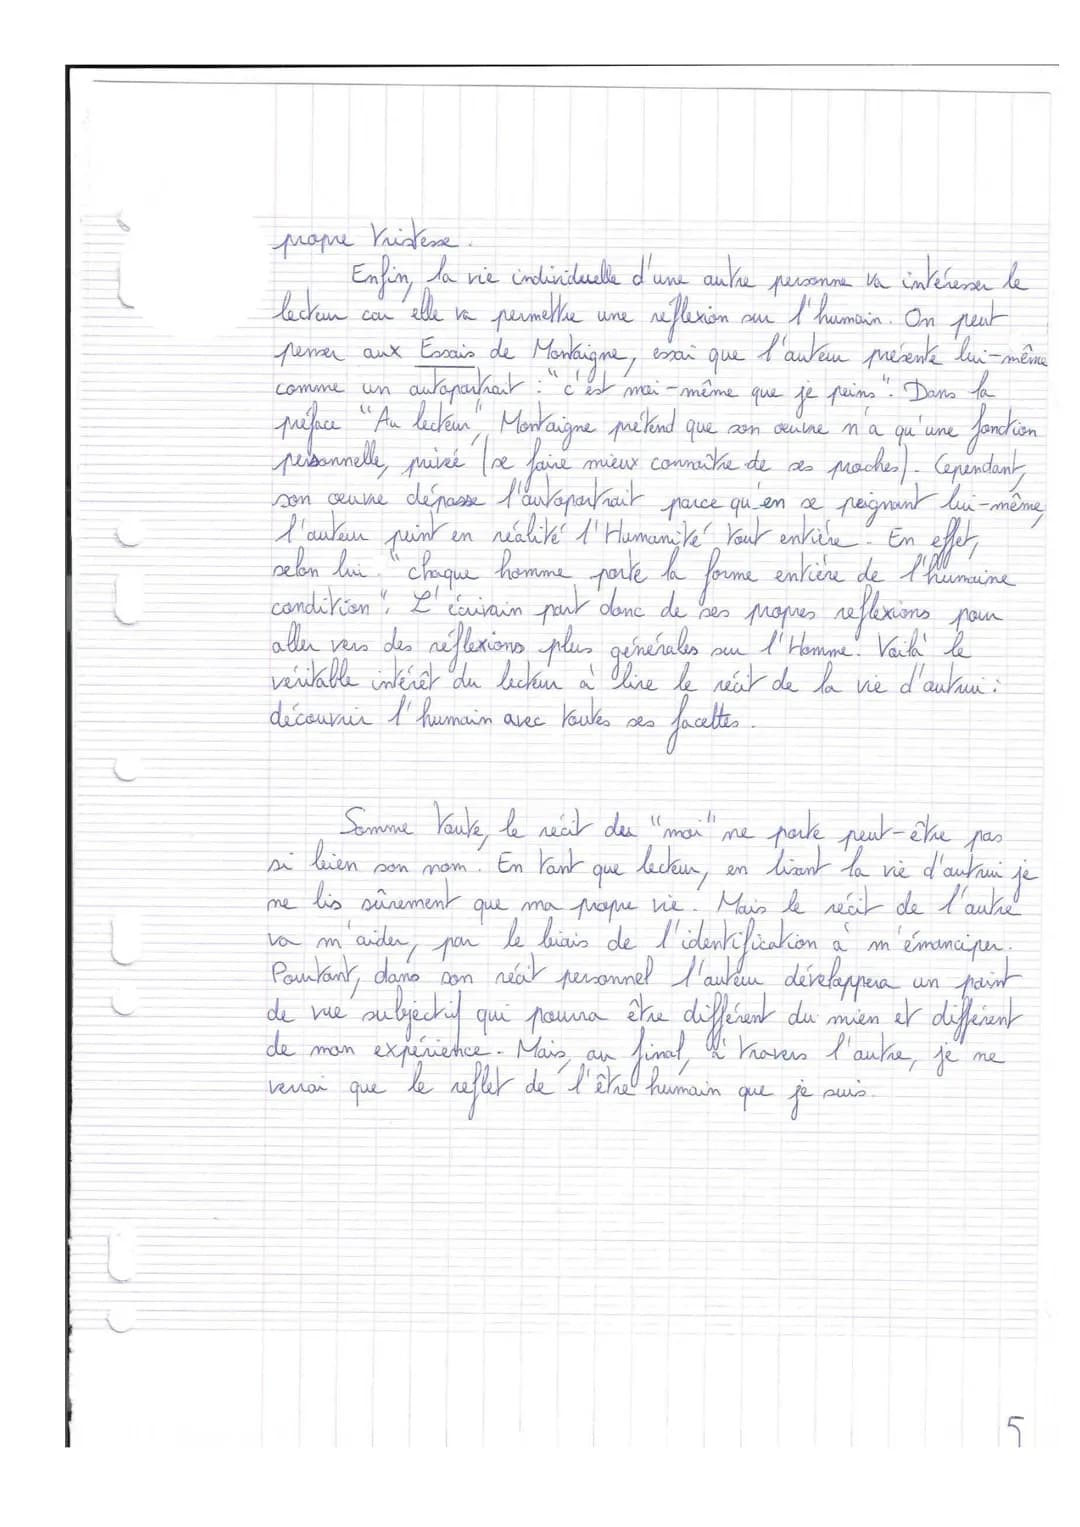 propre tristesse.
Enfin, la vie individuelle d'une autre personne va intéresser le
lecteur car elle va permettre une réflexion sur l'humain. On peut
penser aux Essais de Montaigne, essai que l'auteur présente lui-même
comme un autoportrait : "c'est moi-même que je peins". Dans la
préface "Au lecteur", Montaigne prétend que son œuvre n'a qu'une fonction
personnelle, privée (se faire mieux connaître de ses proches). Cependant,
son œuvre dépasse l'autoportrait parce qu'en se peignant lui-même,
l'auteur peint en réalité l'Humanité tout entière. En effet,
selon lui, "chaque homme porte la forme entière de l'humaine
condition". L'écrivain part donc de ses propres réflexions pour
aller vers des réflexions plus générales sur l'Homme. Voilà le
véritable intérêt du lecteur à lire le récit de la vie d'autrui :
découvrir l'humain avec toutes ses facettes.
Somme toute, le récit du "moi" ne porte peut-être pas
si bien son nom. En tant que lecteur, en lisant la vie d'autrui je
ne lis sûrement que ma propre vie. Mais le récit de l'autre
va m'aider, par le biais de l'identification à m'émanciper.
Pourtant, dans son récit personnel l'auteur développera un point
de vue subjectif qui pourra être différent du mien et différent
de mon expérience. Mais, au final, à travers l'autre, je ne
verrai que le reflet de l'être humain que je suis.
5